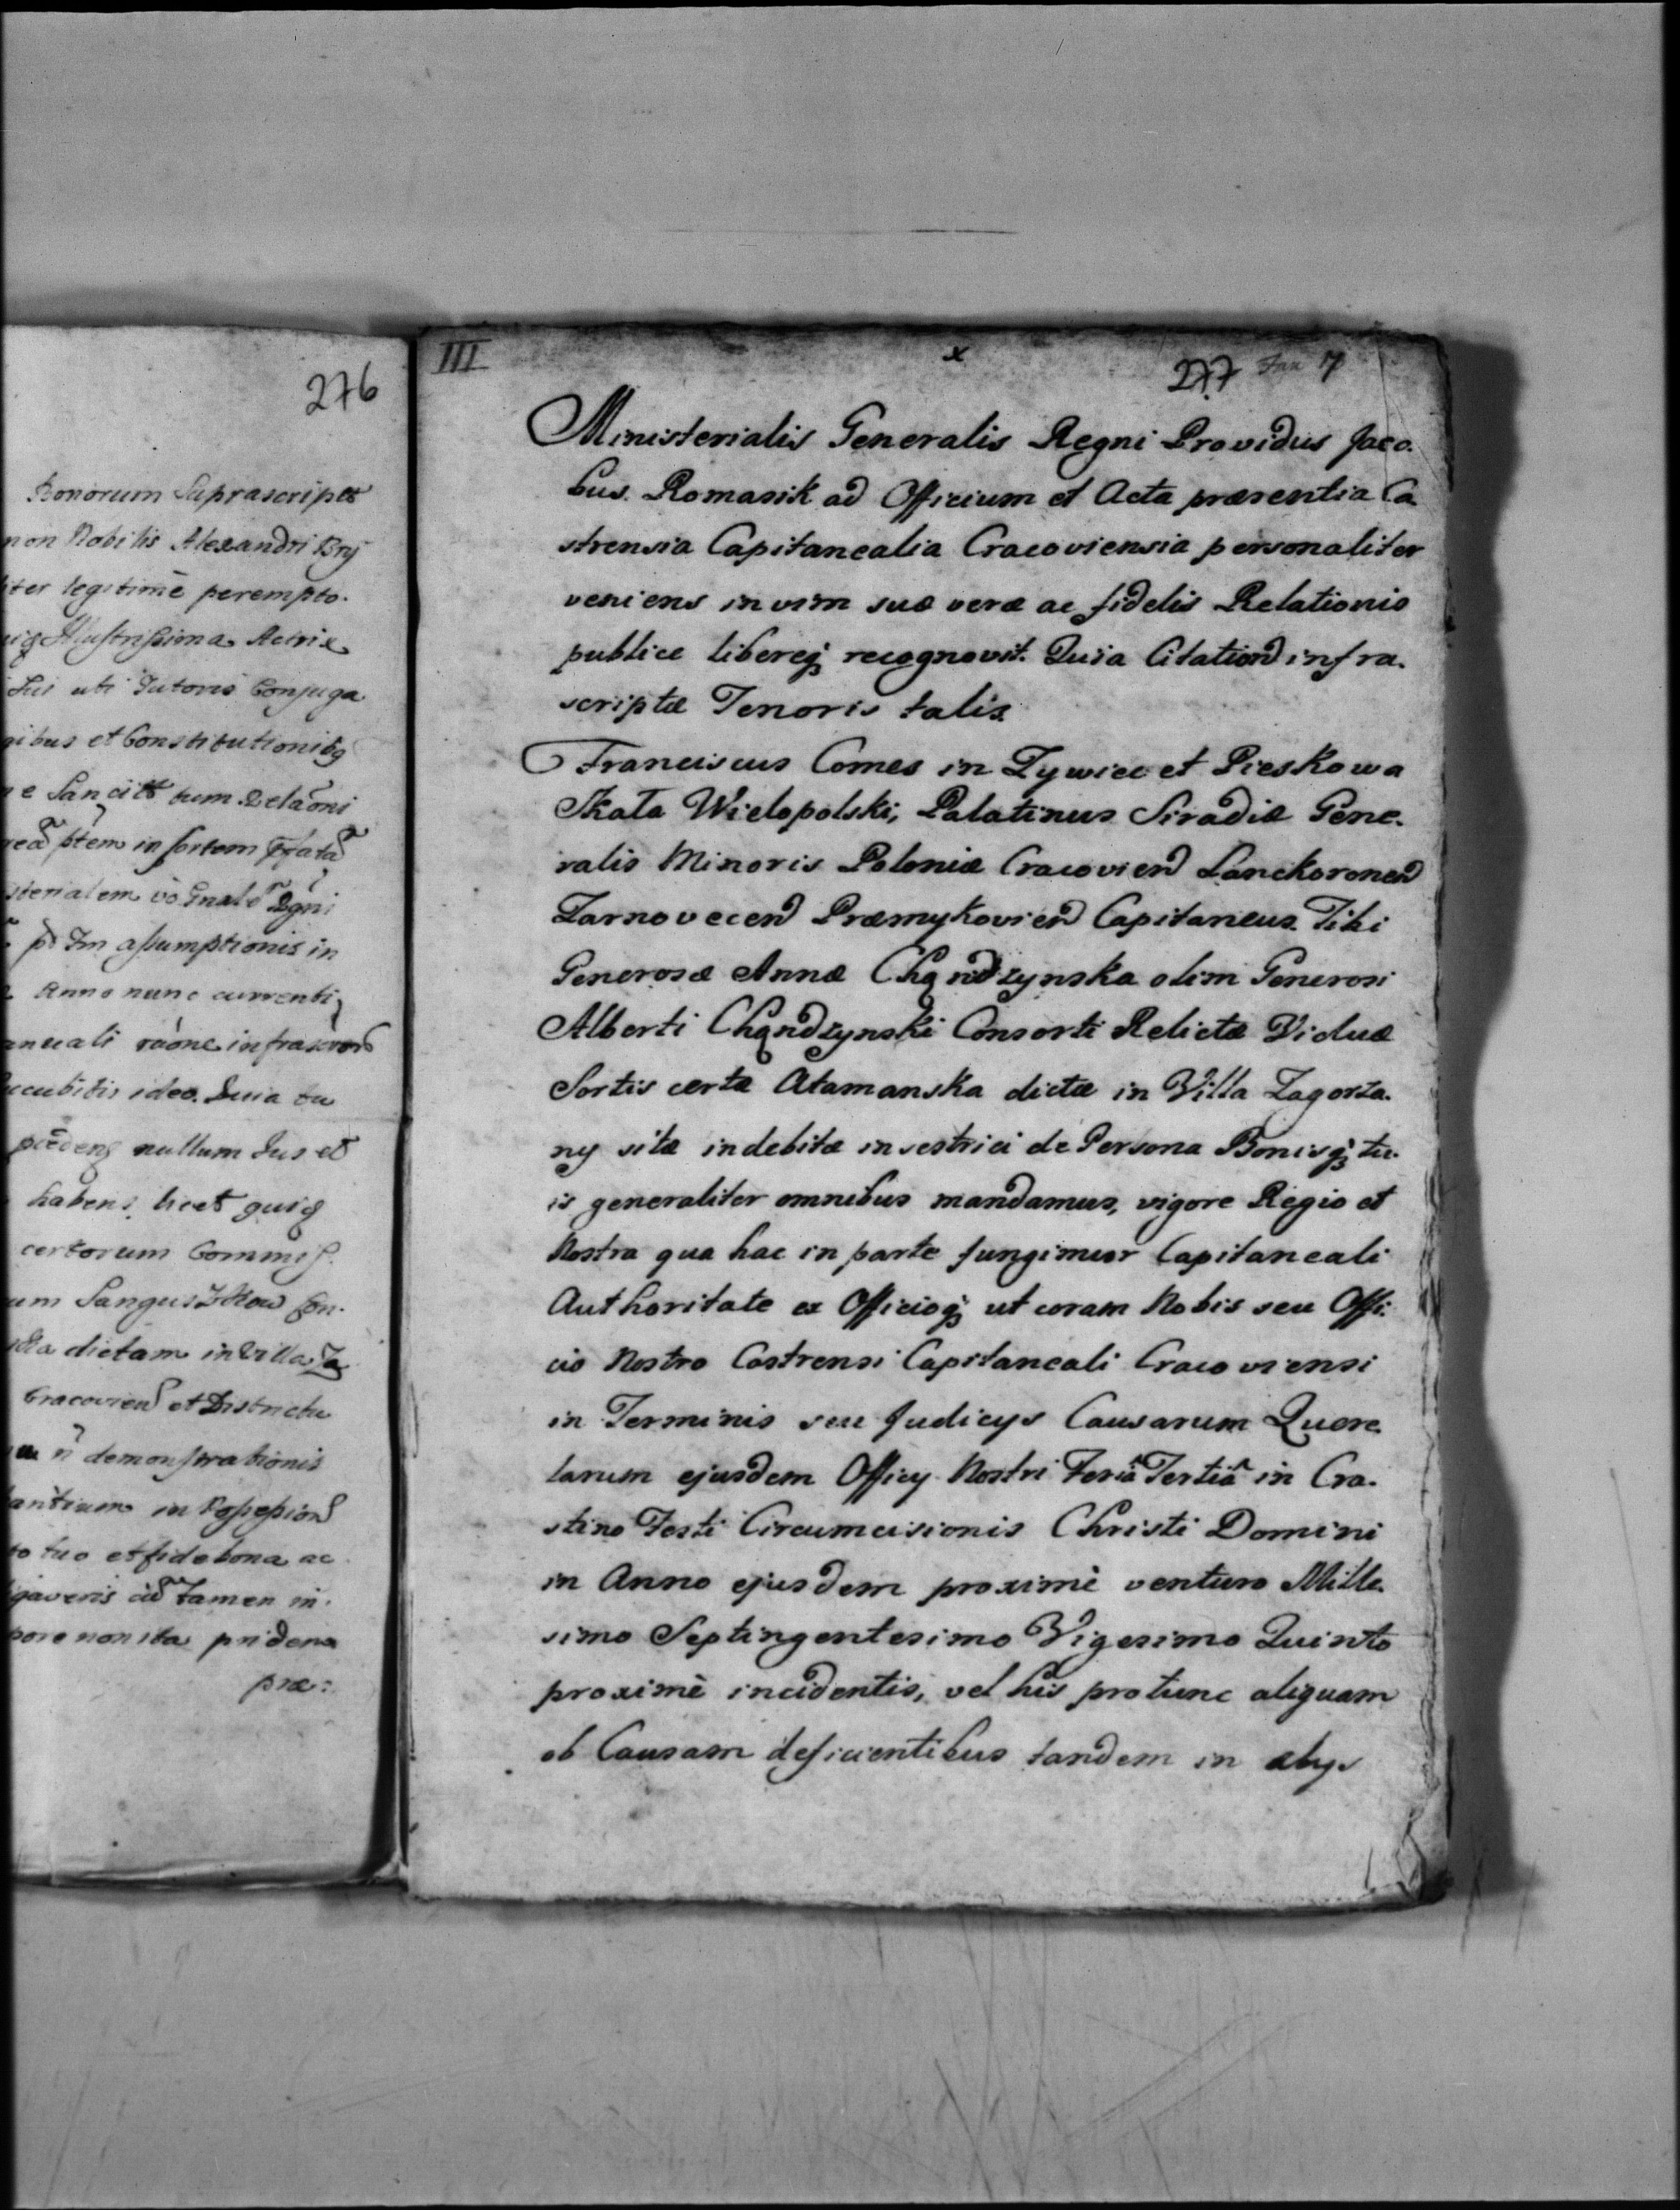 276
Bonorum Suprascript
non Nobilis Alexandri Bry
iter legitimè perempto.
Illustrissima Actrix
sui uti Tutoris Conjuga
gibus et Constitutionibq
tum Relaõni
ptem in sortem
sterialem
assumptionis in
Anno nunc currenti
anuali raõne infrascr
ccubitis ideo. Quia tu
nullum Jus et
habens, licet
certorum Commiss.
um Sanguszkow
ska dictam in Villa Za
Cracovien et Districtu
demonstrationis
antium in Possession
to tuo et fide bona ac
gaveris tamen in.
pore non ita pridem
præ:
III x 277 7
Ministerialis Generalis Regni Providus Jaco.
bus Romasik ad Officium et Acta præsentia Ca
strensia Capitanealia Cracoviensia personaliter
veniens in vim suæ veræ ac fidelis Relationis
publice libereq recognovit. Quia Citation infra.
scriptæ Tenoris talis.
Franciscus Comes in Zywiec et Pieskowa
Skała Wielopolski, Palatinus Siradiæ Gene.
ralis Minoris Poloniæ Cracovien Lanckoronen
Zarnovecen Præmykovien Capitaneus. Tibi
Generosæ Annæ Chądzynska olim Generosi
Alberti Chądzynski Consorti Relictæ Viduæ
Sortis certæ Atamanska dictæ in Villa Zagorza.
ny sitæ indebitæ investrici de Persona Bonisq tu.
is generaliter omnibus mandamus, vigore Regio et
Nostra qua hac in parte fungimur Capitaneali
Authoritate ex Officioq ut coram Nobis seu Offi.
cio Nostro Castrensi Capitaneali Cracoviensi
in Terminis seu Judicys Causarum Quere
larum ejusdem Officy Nostri Feriâ Tertiâ in Cra.
stino Festi Circumcisionis Christi Domini
in Anno ejusdem proximè venturo Mille.
simo Septingentesimo Vigesimo Quinto
proximè incidentis, vel his protunc aliquam
ob Causam deficientibus tandem in alys